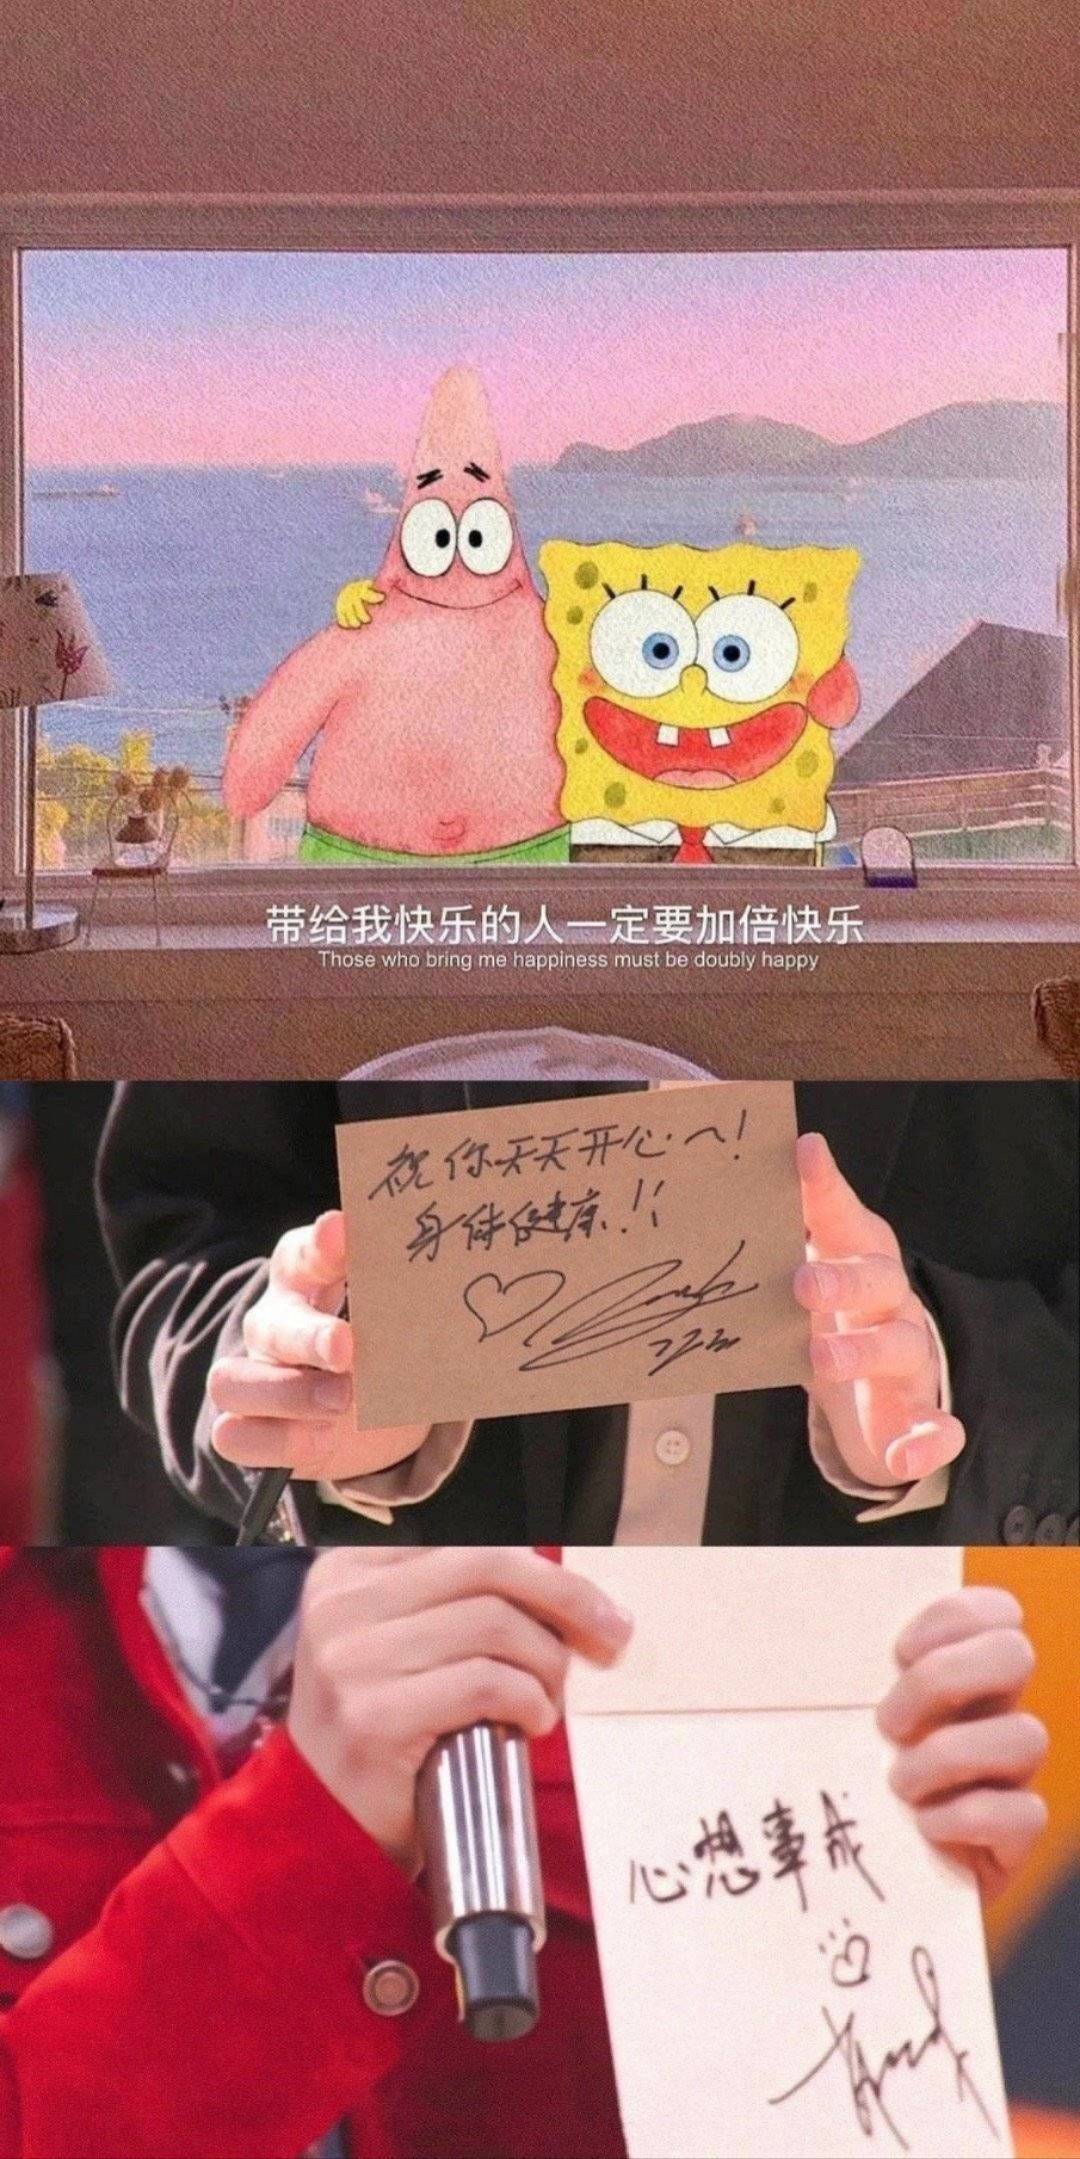 带给我快乐的人一定要加倍快乐
Those who bring me happiness must be doubly happy
祝你天天开心~!
身体健康!!!
心想事成